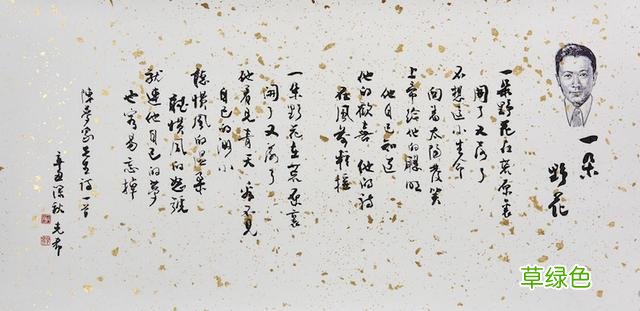 一朵
野花
一朵野花在荒原裏
開了又落了
不想這小生命
向着太陽發笑
上帝給他的聰明
他自己知道
他的歡喜 他的詩
在風前輕搖
一朵野花在荒原裏
開了又落了
他看見青天 看不見
自己的小
聽慣風的溫柔
聽慣風的怒號
就連他自己的夢
也容易忘掉
陳夢家先生詩一首
辛丑深秋
草绿色